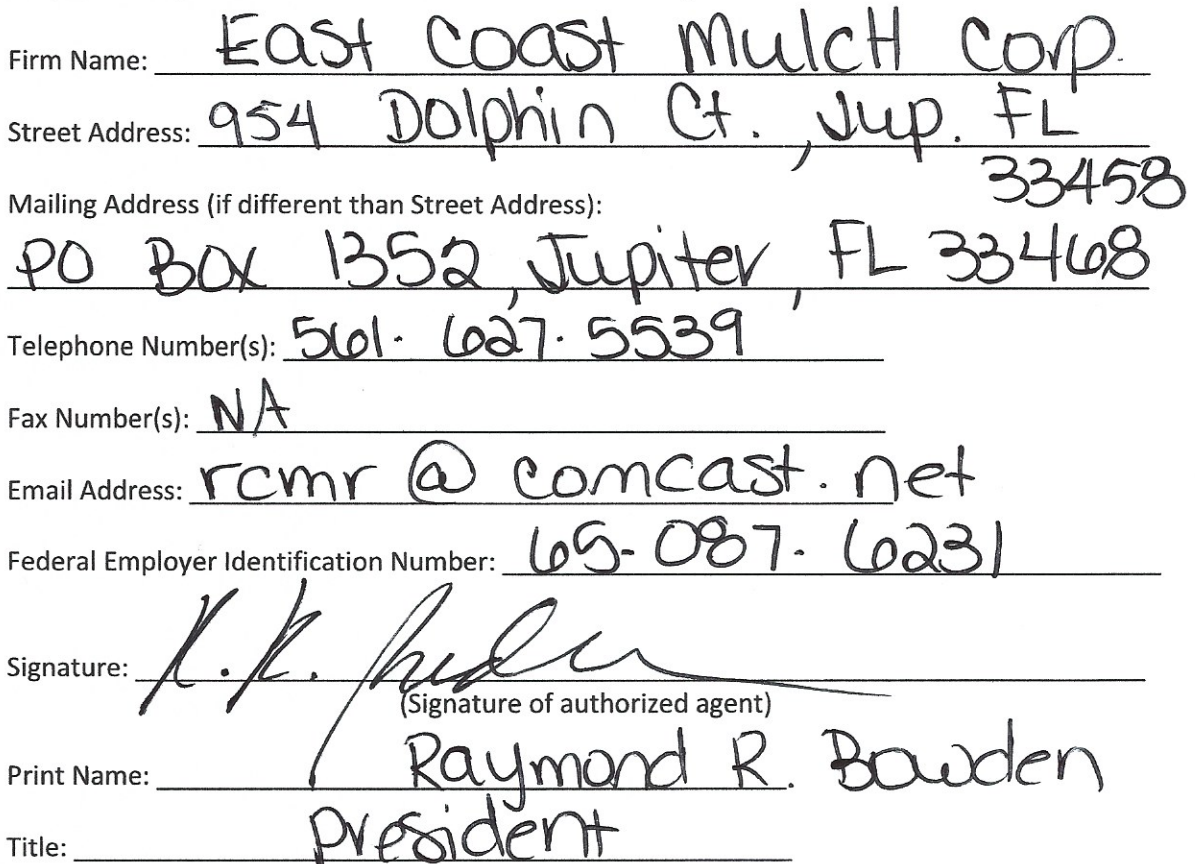 Firm Name: East Coast MulcH Corp.
Street Address: 954 Dolphin Ct., Jup. FL
33458
Mailing Address (if different than Street Address):
PO Box 1352, Jupiter, FL 33468
Telephone Number(s): 561. 627. 5539
Fax Number(s): NA
Email Address: rcmr @ comcast. net
Federal Employer Identification Number: 65-087-6231
Signature:
(Signature of authorized agent)
Print Name: Raymond R. Bowden
Title: President